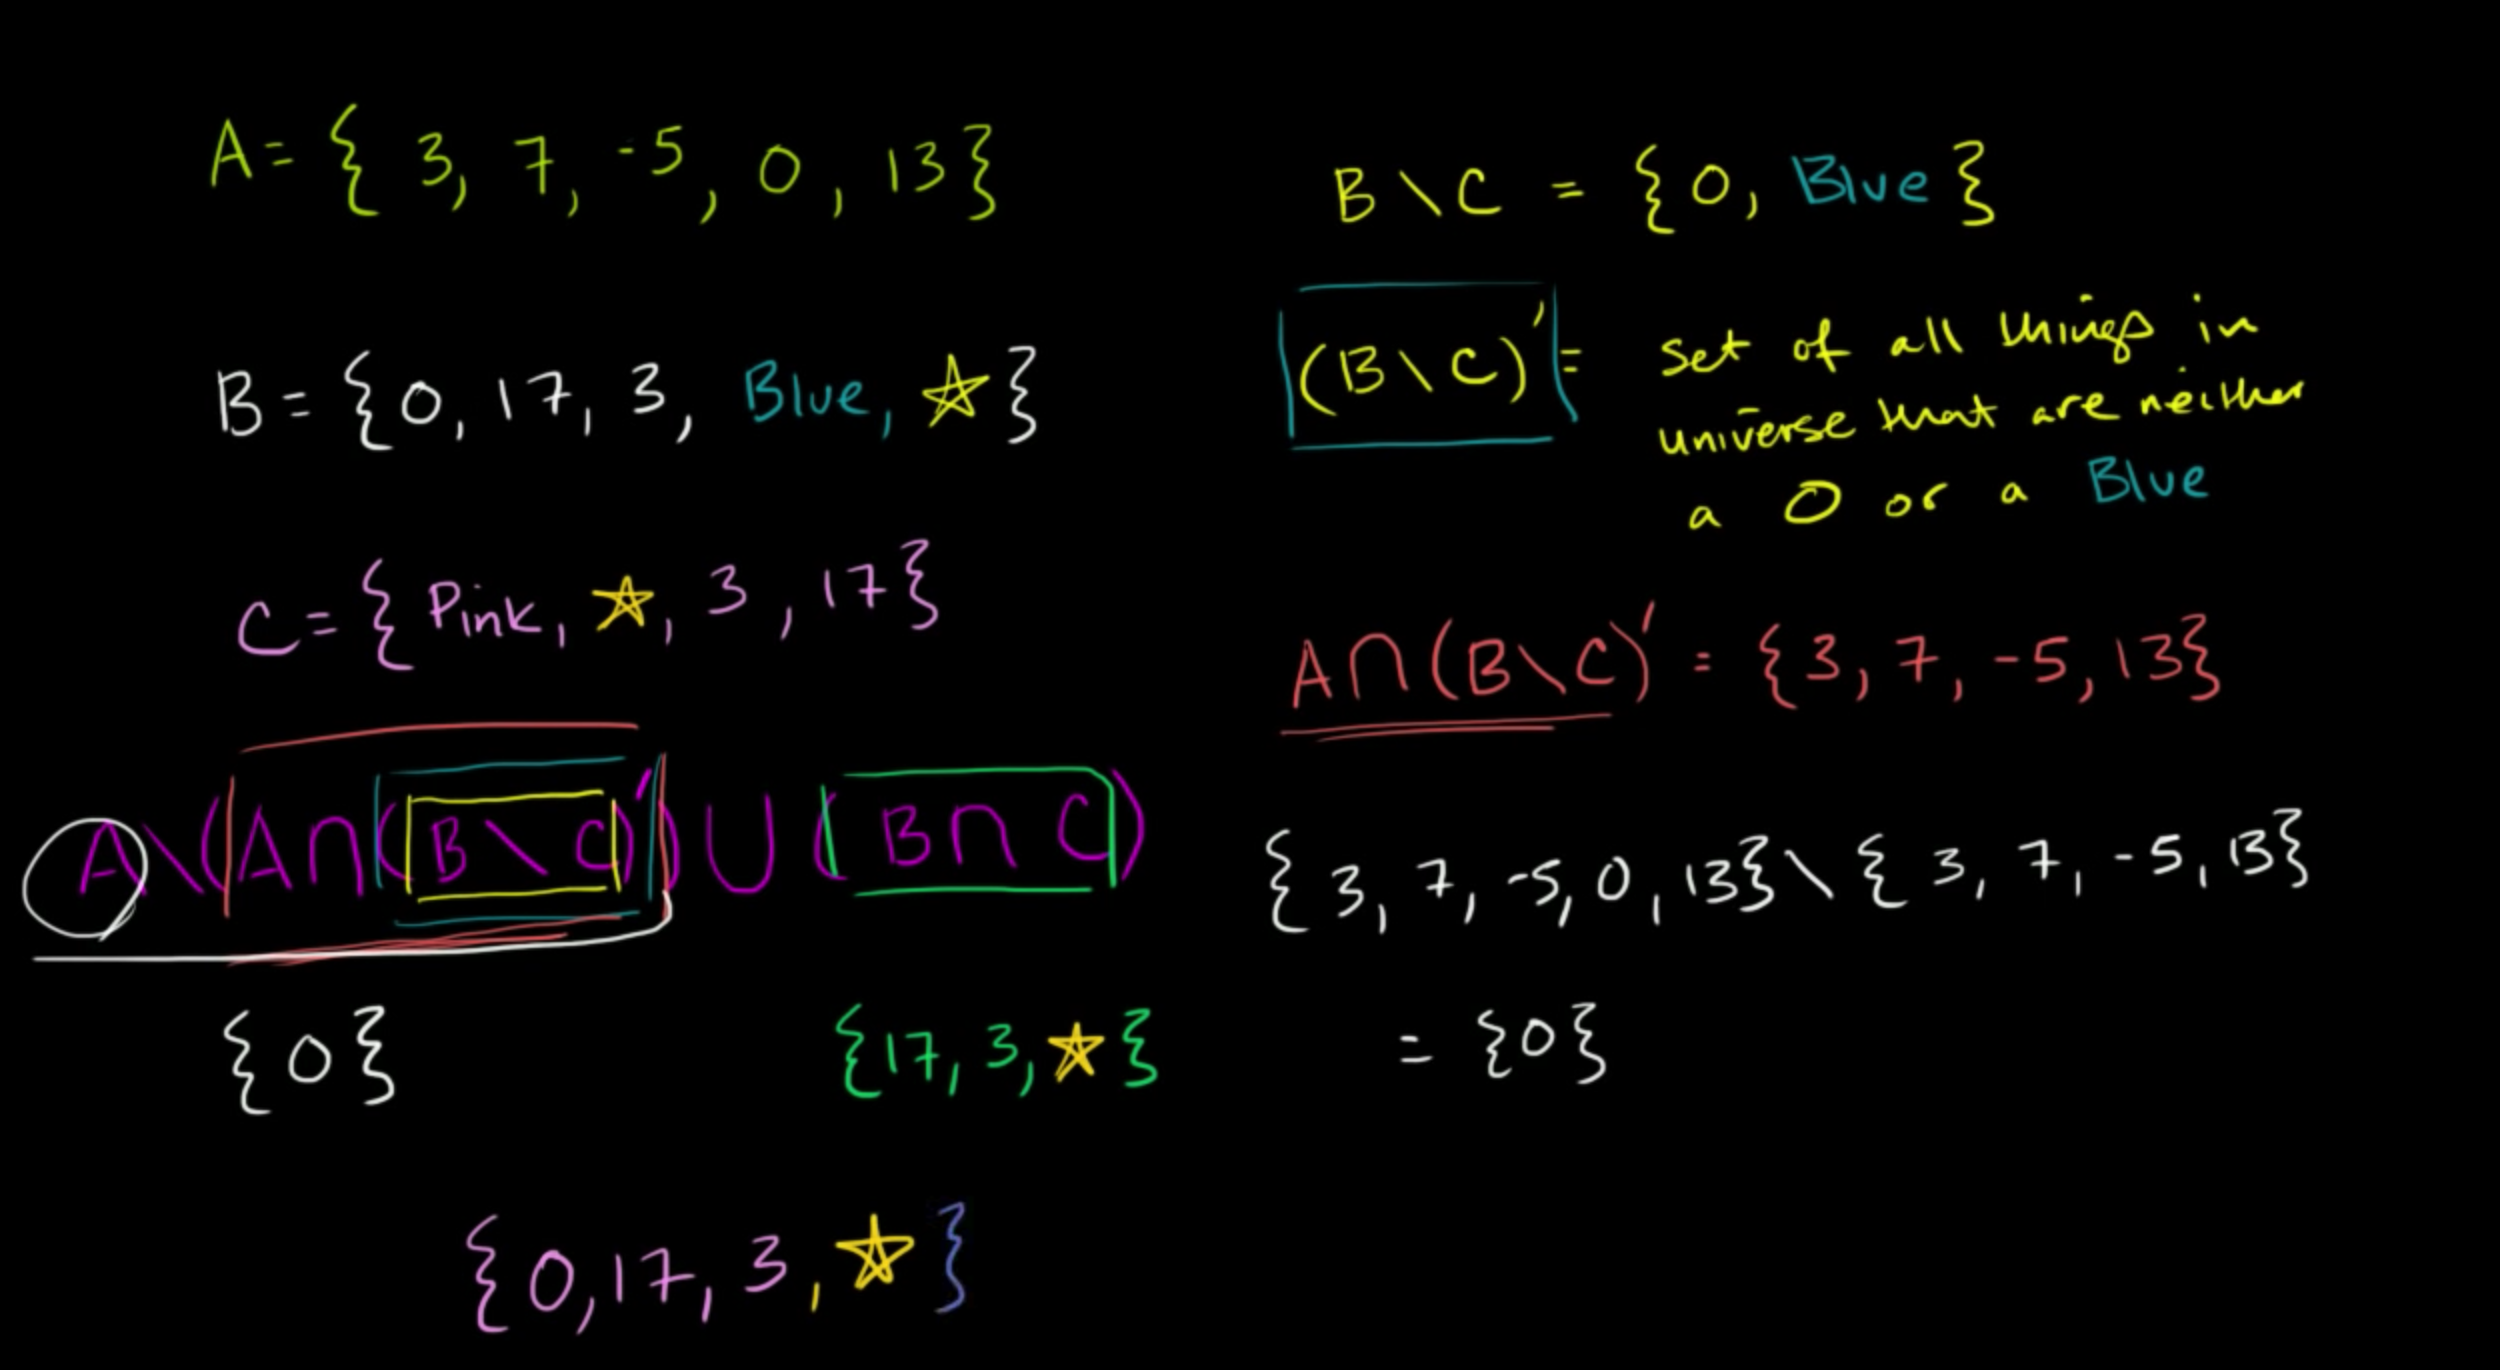 A = { 3, 7, -5, 0, 13 }
B = { 0, 17, 3, Blue, ☆ }
C = { Pink, ☆, 3, 17 }
A \ (A ∩ (B \ C)') ∪ (B ∩ C)
{ 0 }
{ 17, 3, ☆ }
{ 0, 17, 3, ☆ }
B \ C = { 0, Blue }
(B \ C)' = set of all things in
universe that are neither
a 0 or a Blue
A ∩ (B \ C)' = { 3, 7, -5, 13 }
{ 3, 7, -5, 0, 13 } \ { 3, 7, -5, 13 }
= { 0 }